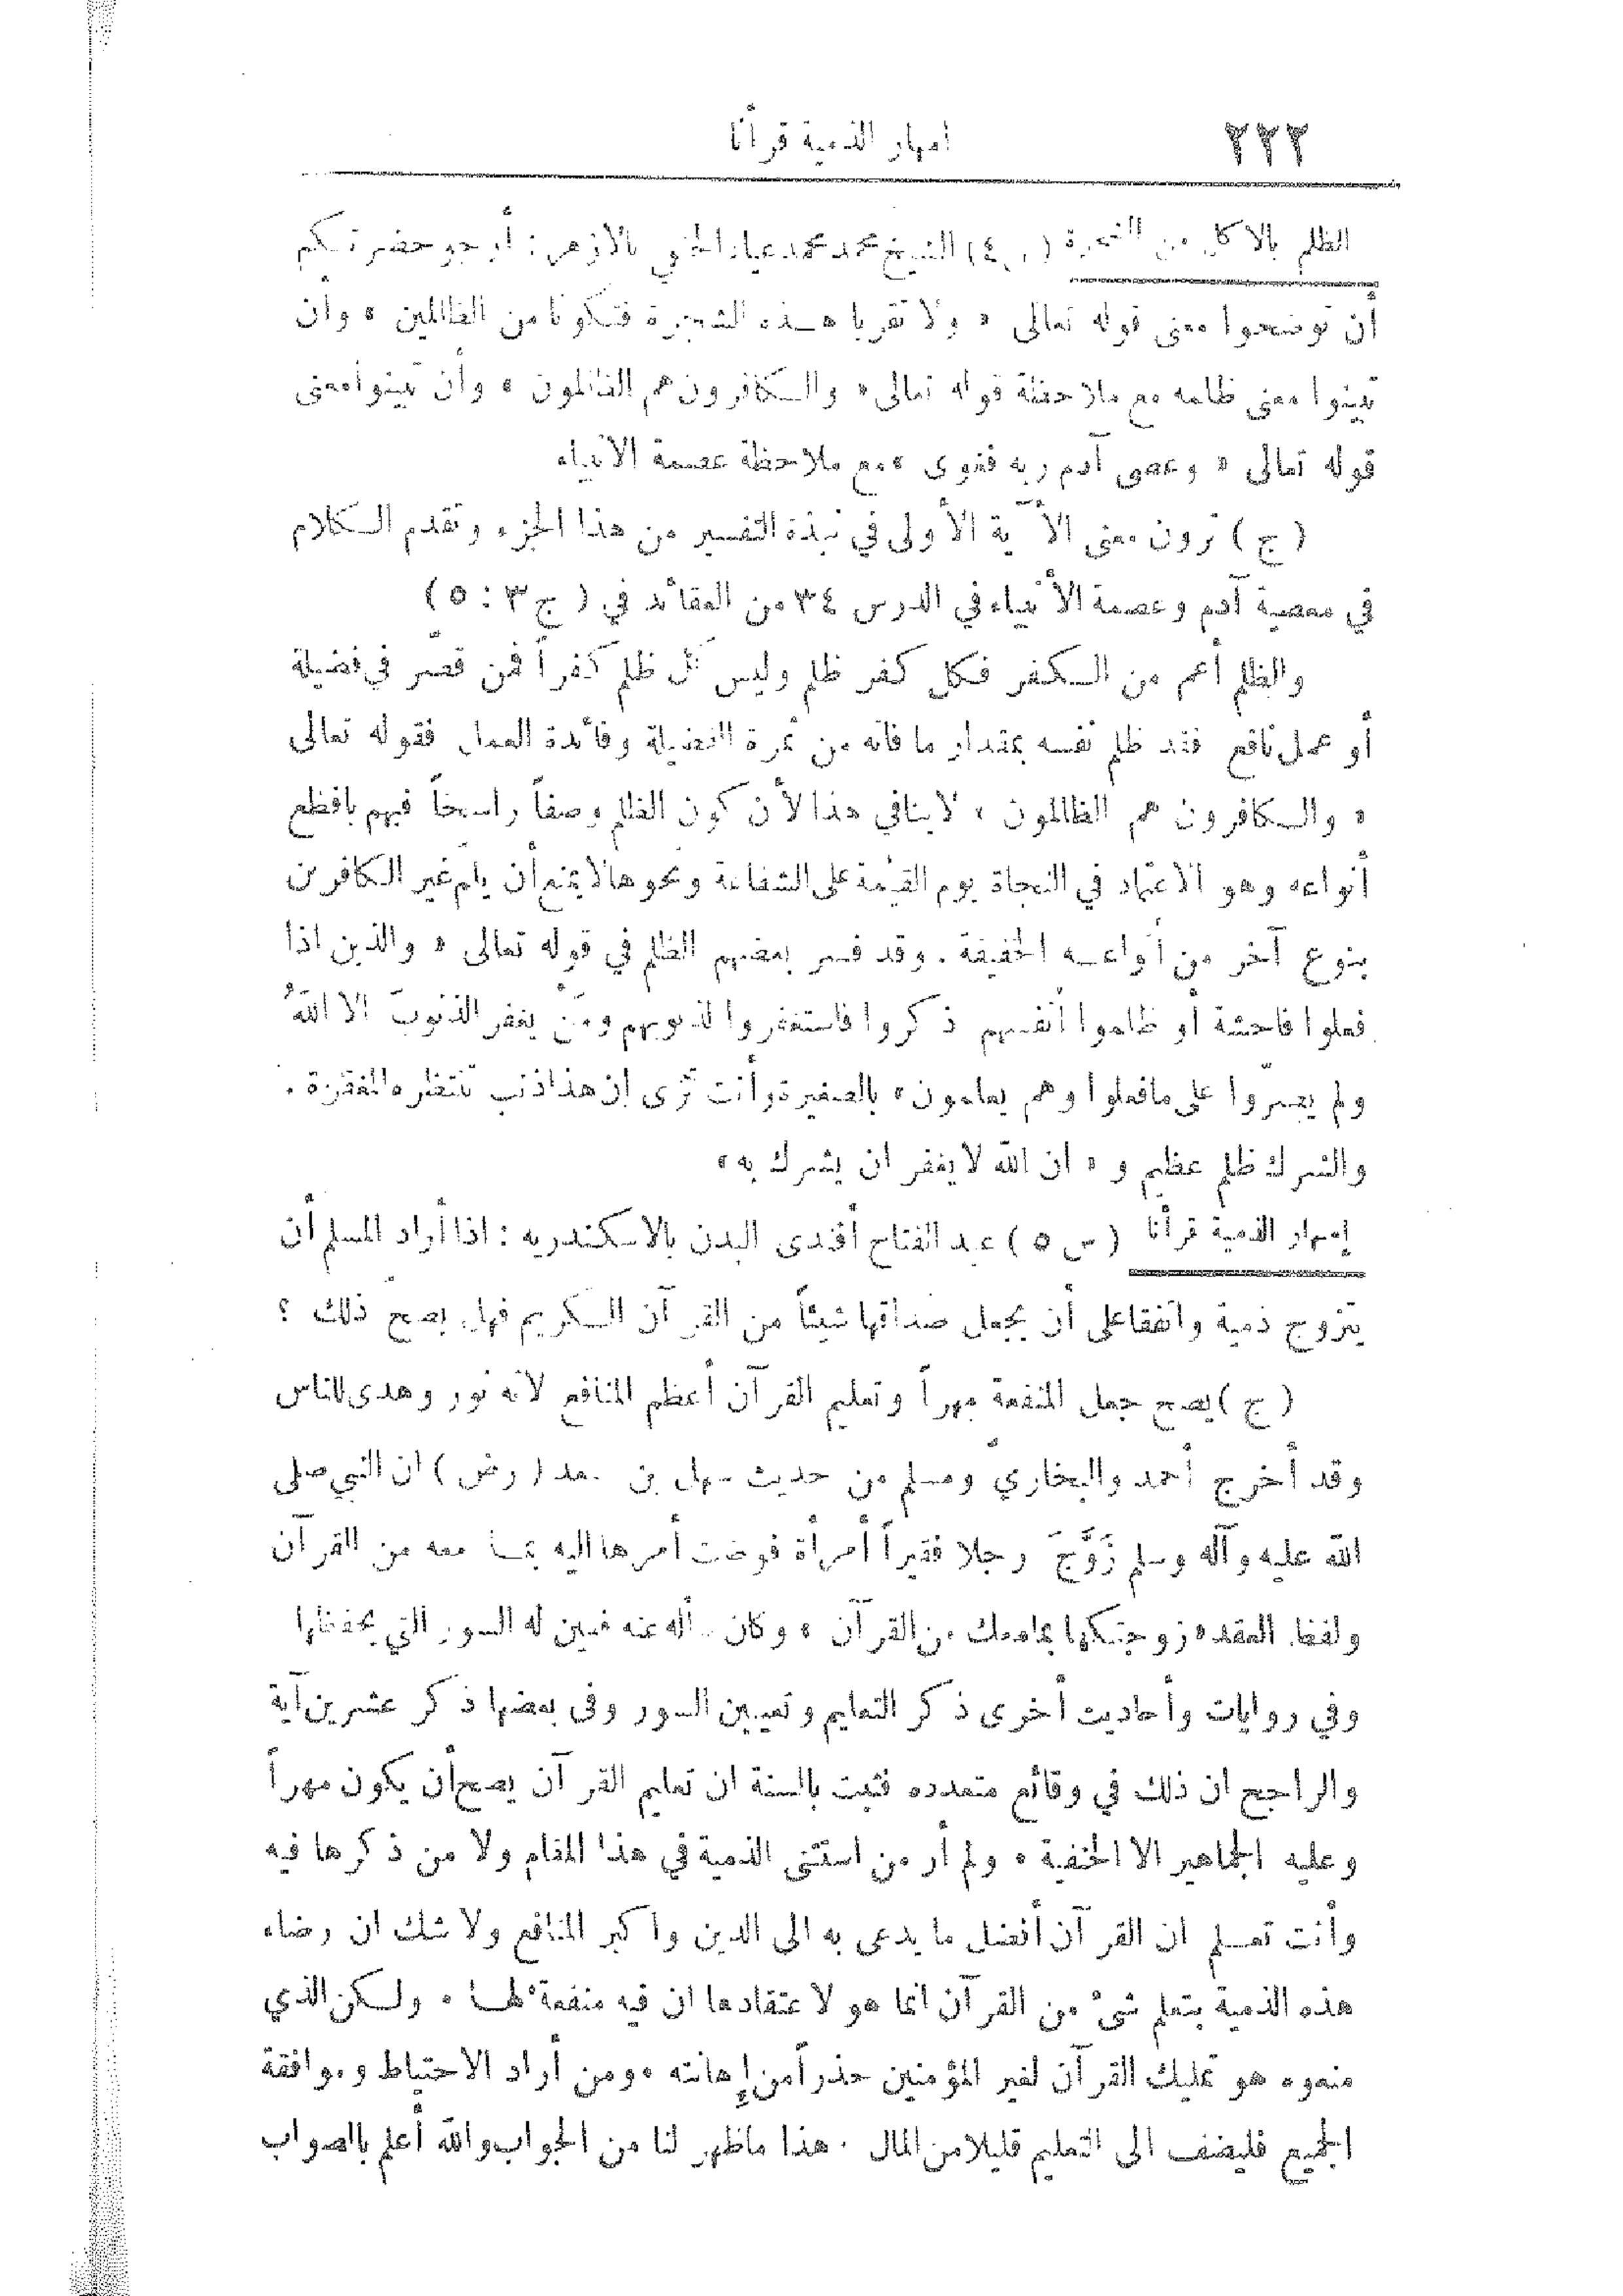 ٢٢٢
امهار الذمية قرآنا
الظلم بالاكل من الشجرة (س ٤) الشيخ محمد محمد عياد الحنفي بالازهر : أرجو حضرتكم
أن توضحوا معنى قوله تعالى « ولا تقربا هذه الشجرة فتكونا من الظالمين » وأن
تبينوا معنى ظلمه مع ملاحظة قوله تعالى « والكافرون هم الظالمون » وأن تبينوا معنى
قوله تعالى « وعصى آدم ربه فغوى » مع ملاحظة عصمة الانبياء
( ج ) ترون معنى الآية الأولى في نبذة التفسير من هذا الجزء وتقدم الكلام
في معصية آدم وعصمة الأنبياء في الدرس ٣٤ من العقائد في ( ج ٣ : ٥ )
والظلم أعم من الكفر فكل كفر ظلم وليس كل ظلم كفراً فمن قصّر في فضيلة
أو عمل نافع فقد ظلم نفسه بمقدار ما فاته من ثمرة الفضيلة وفائدة العمل فقوله تعالى
« والكافرون هم الظالمون » لا ينافي هذا لأن كون الظلم وصفاً راسخاً فيهم بافظع
أنواعه وهو الاعتماد في النجاة يوم القيمة على الشفاعة ونحوها لا يمنع أن يلم غير الكافرين
بنوع آخر من أنواعه الخفيفة . وقد فسر بعضهم الظلم في قوله تعالى « والذين اذا
فعلوا فاحشة أو ظلموا أنفسهم ذكروا فاستغفروا لذنوبهم ومَن يغفر الذنوبَ الا اللهُ
ولم يصرّوا على ما فعلوا وهم يعلمون » بالصغيرة وأنت ترى إن هذا ذنب تنتظره المغفرة .
والشرك ظلم عظيم و « ان الله لا يغفر ان يشرك به »
إمهار الذمية قرآنا ( س ٥ ) عبد الفتاح أفندى البدن بالاسكندريه : اذا أراد المسلم أن
يتزوج ذمية واتفقا على أن يجعل صداقها شيئاً من القرآن الكريم فهل يصح ذلك ؟
( ج ) يصح جعل المنفعة مهراً وتعليم القرآن أعظم المنافع لانه نور وهدى للناس
وقد أخرج أحمد والبخاريّ ومسلم من حديث سهل بن سعد ( رض ) ان النبي صلى
الله عليه وآله وسلم زَوَّجَ رجلا فقيراً أمرأة فوضت أمرها اليه بما معه من القرآن
ولفظ العقد « زوجتكها بما معك من القرآن » وكان سأله عنه فبين له السور التي يحفظها
وفي روايات وأحاديث أخرى ذكر التعليم وتعيين السور وفى بعضها ذكر عشرين آية
والراجح ان ذلك في وقائع متعدده فثبت بالسنة ان تعليم القرآن يصح أن يكون مهراً
وعليه الجماهير الا الحنفية . ولم أر من استثنى الذمية في هذا المقام ولا من ذكرها فيه
وأنت تعلم ان القرآن أفضل ما يدعى به الى الدين واكبر المنافع ولا شك ان رضاء
هذه الذمية بتعلم شيءٍ من القرآن انما هو لاعتقادها ان فيه منفعة لها . ولكن الذي
منعوه هو تمليك القرآن لغير المؤمنين حذراً من إهانته . ومن أراد الاحتياط وموافقة
الجميع فليضف الى التعليم قليلا من المال . هذا ما ظهر لنا من الجواب والله أعلم بالصواب